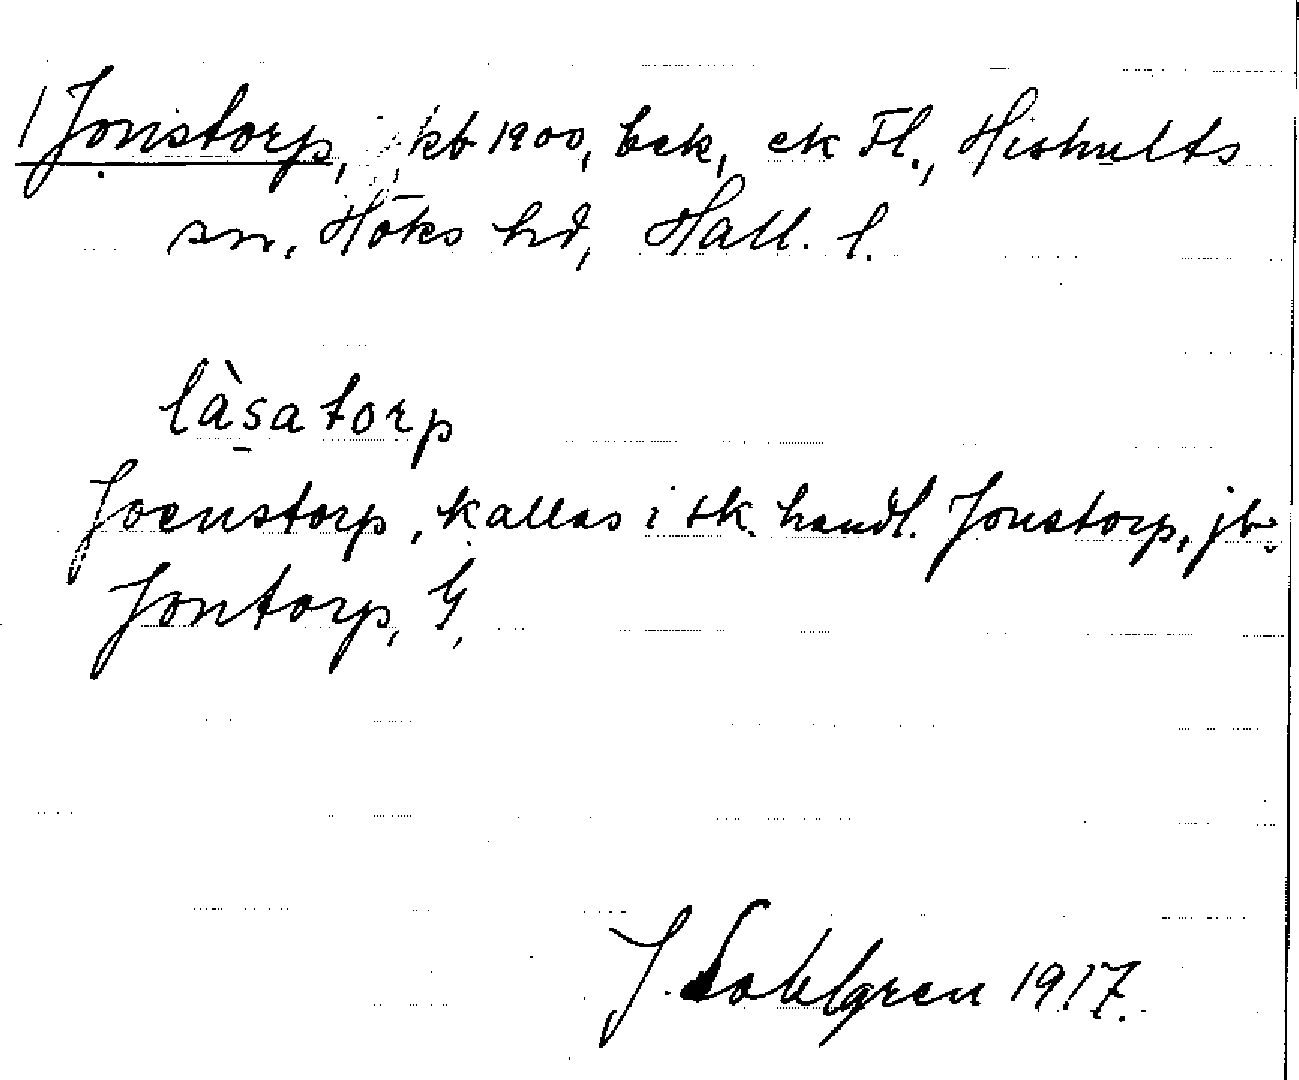 / Jonstorp, kb 1900, bek, ek Fl., Hishults
sn, Höks hd, Hall. l.
làsatorp
Joenstorp, kallas i sk. handl. Jonstorp, jb
Jontorp, G,
J. Sahlgren 1917.